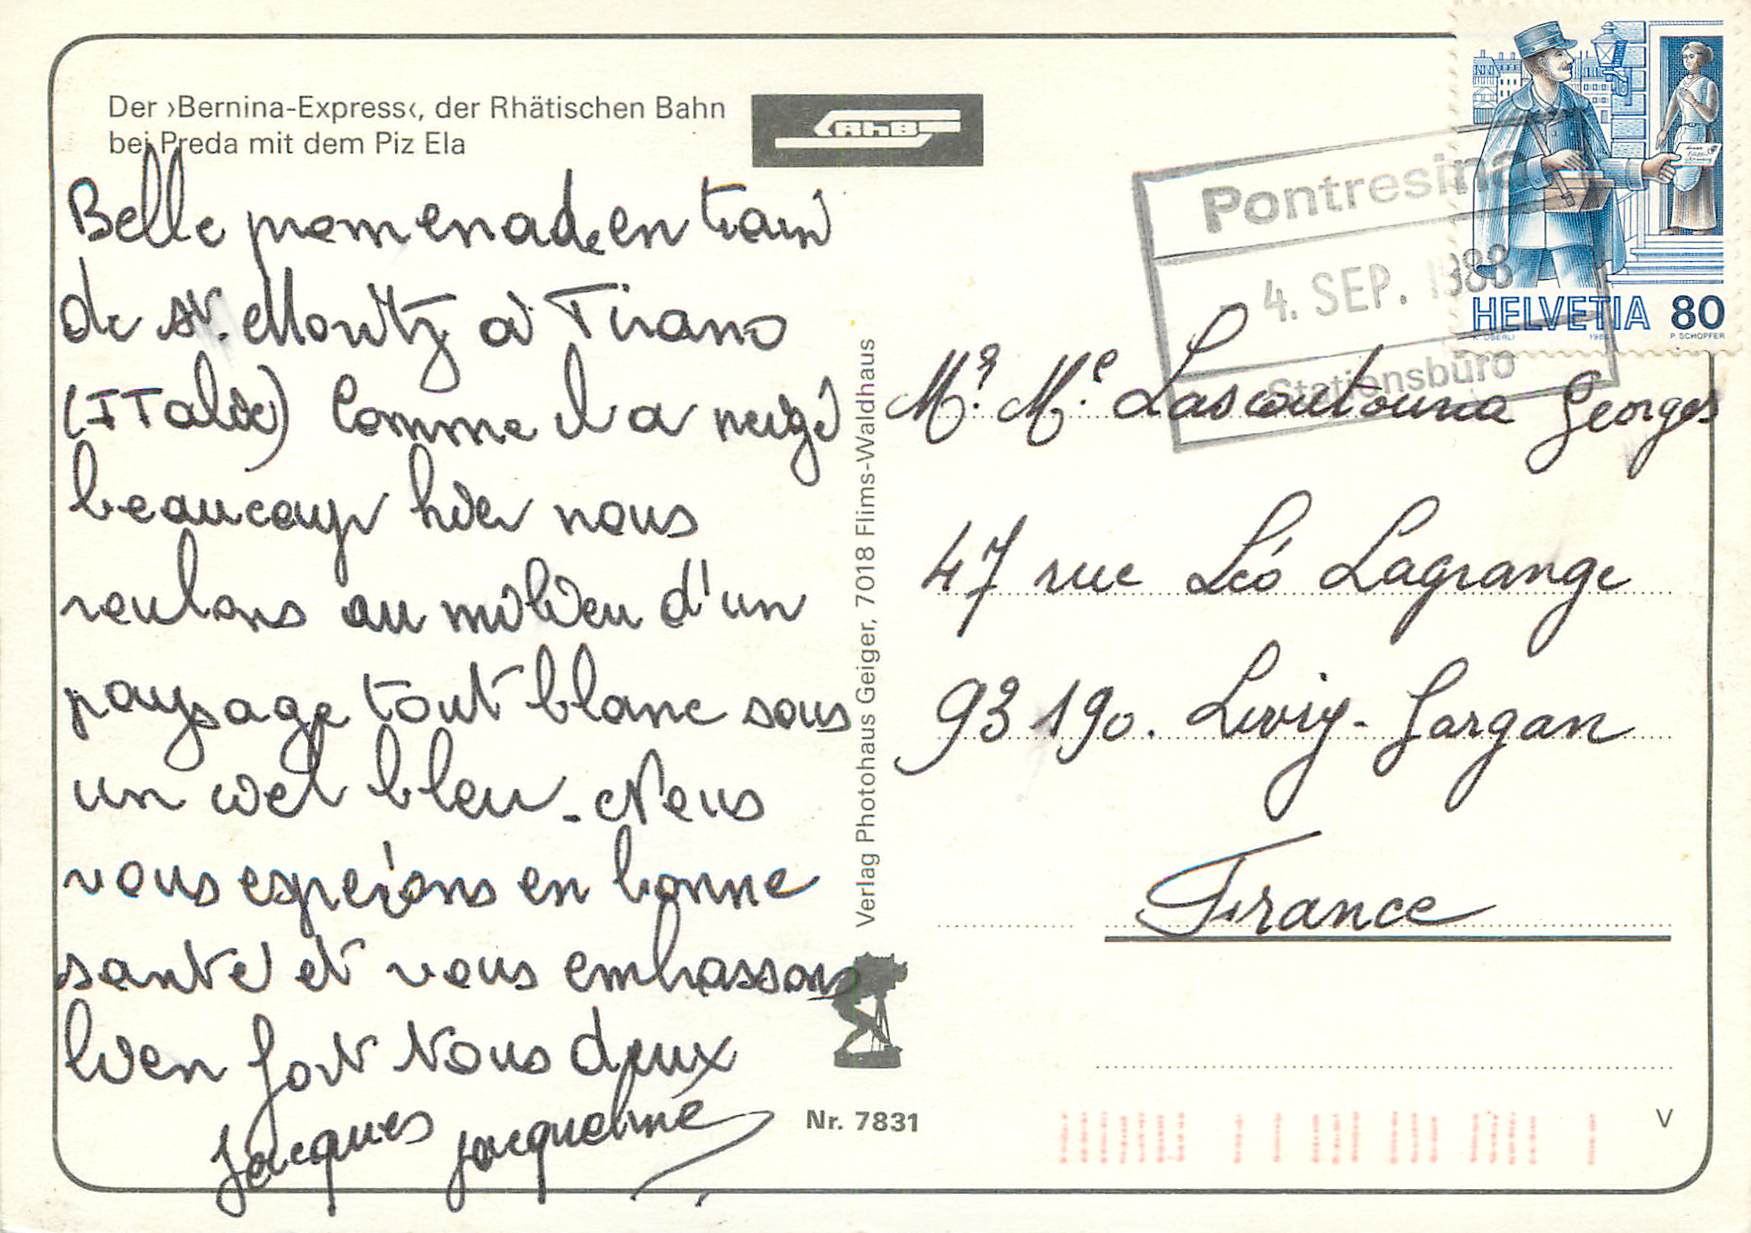 Der ›Bernina-Express‹, der Rhätischen Bahn
bei Preda mit dem Piz Ela
RhB
Belle promenade en train
de St. Moritz à Tirano
(ITalie) Comme il a neigé
beaucoup hier nous
roulons au milieu d'un
paysage tout blanc sous
un ciel bleu. Nous
vous espérons en bonne
santé et vous embrassons
bien fort Nous deux
Jacques Jacqueline
Verlag Photohaus Geiger, 7018 Flims-Waldhaus
Nr. 7831
HELVETIA 80
K. OBERLI P. SCHOPFER
Pontresina
4. SEP. 1988
Stationsbüro
Mr. Me. Lascoutouna Georges
47 rue Léo Lagrange
93190. Livry-Gargan
France
V